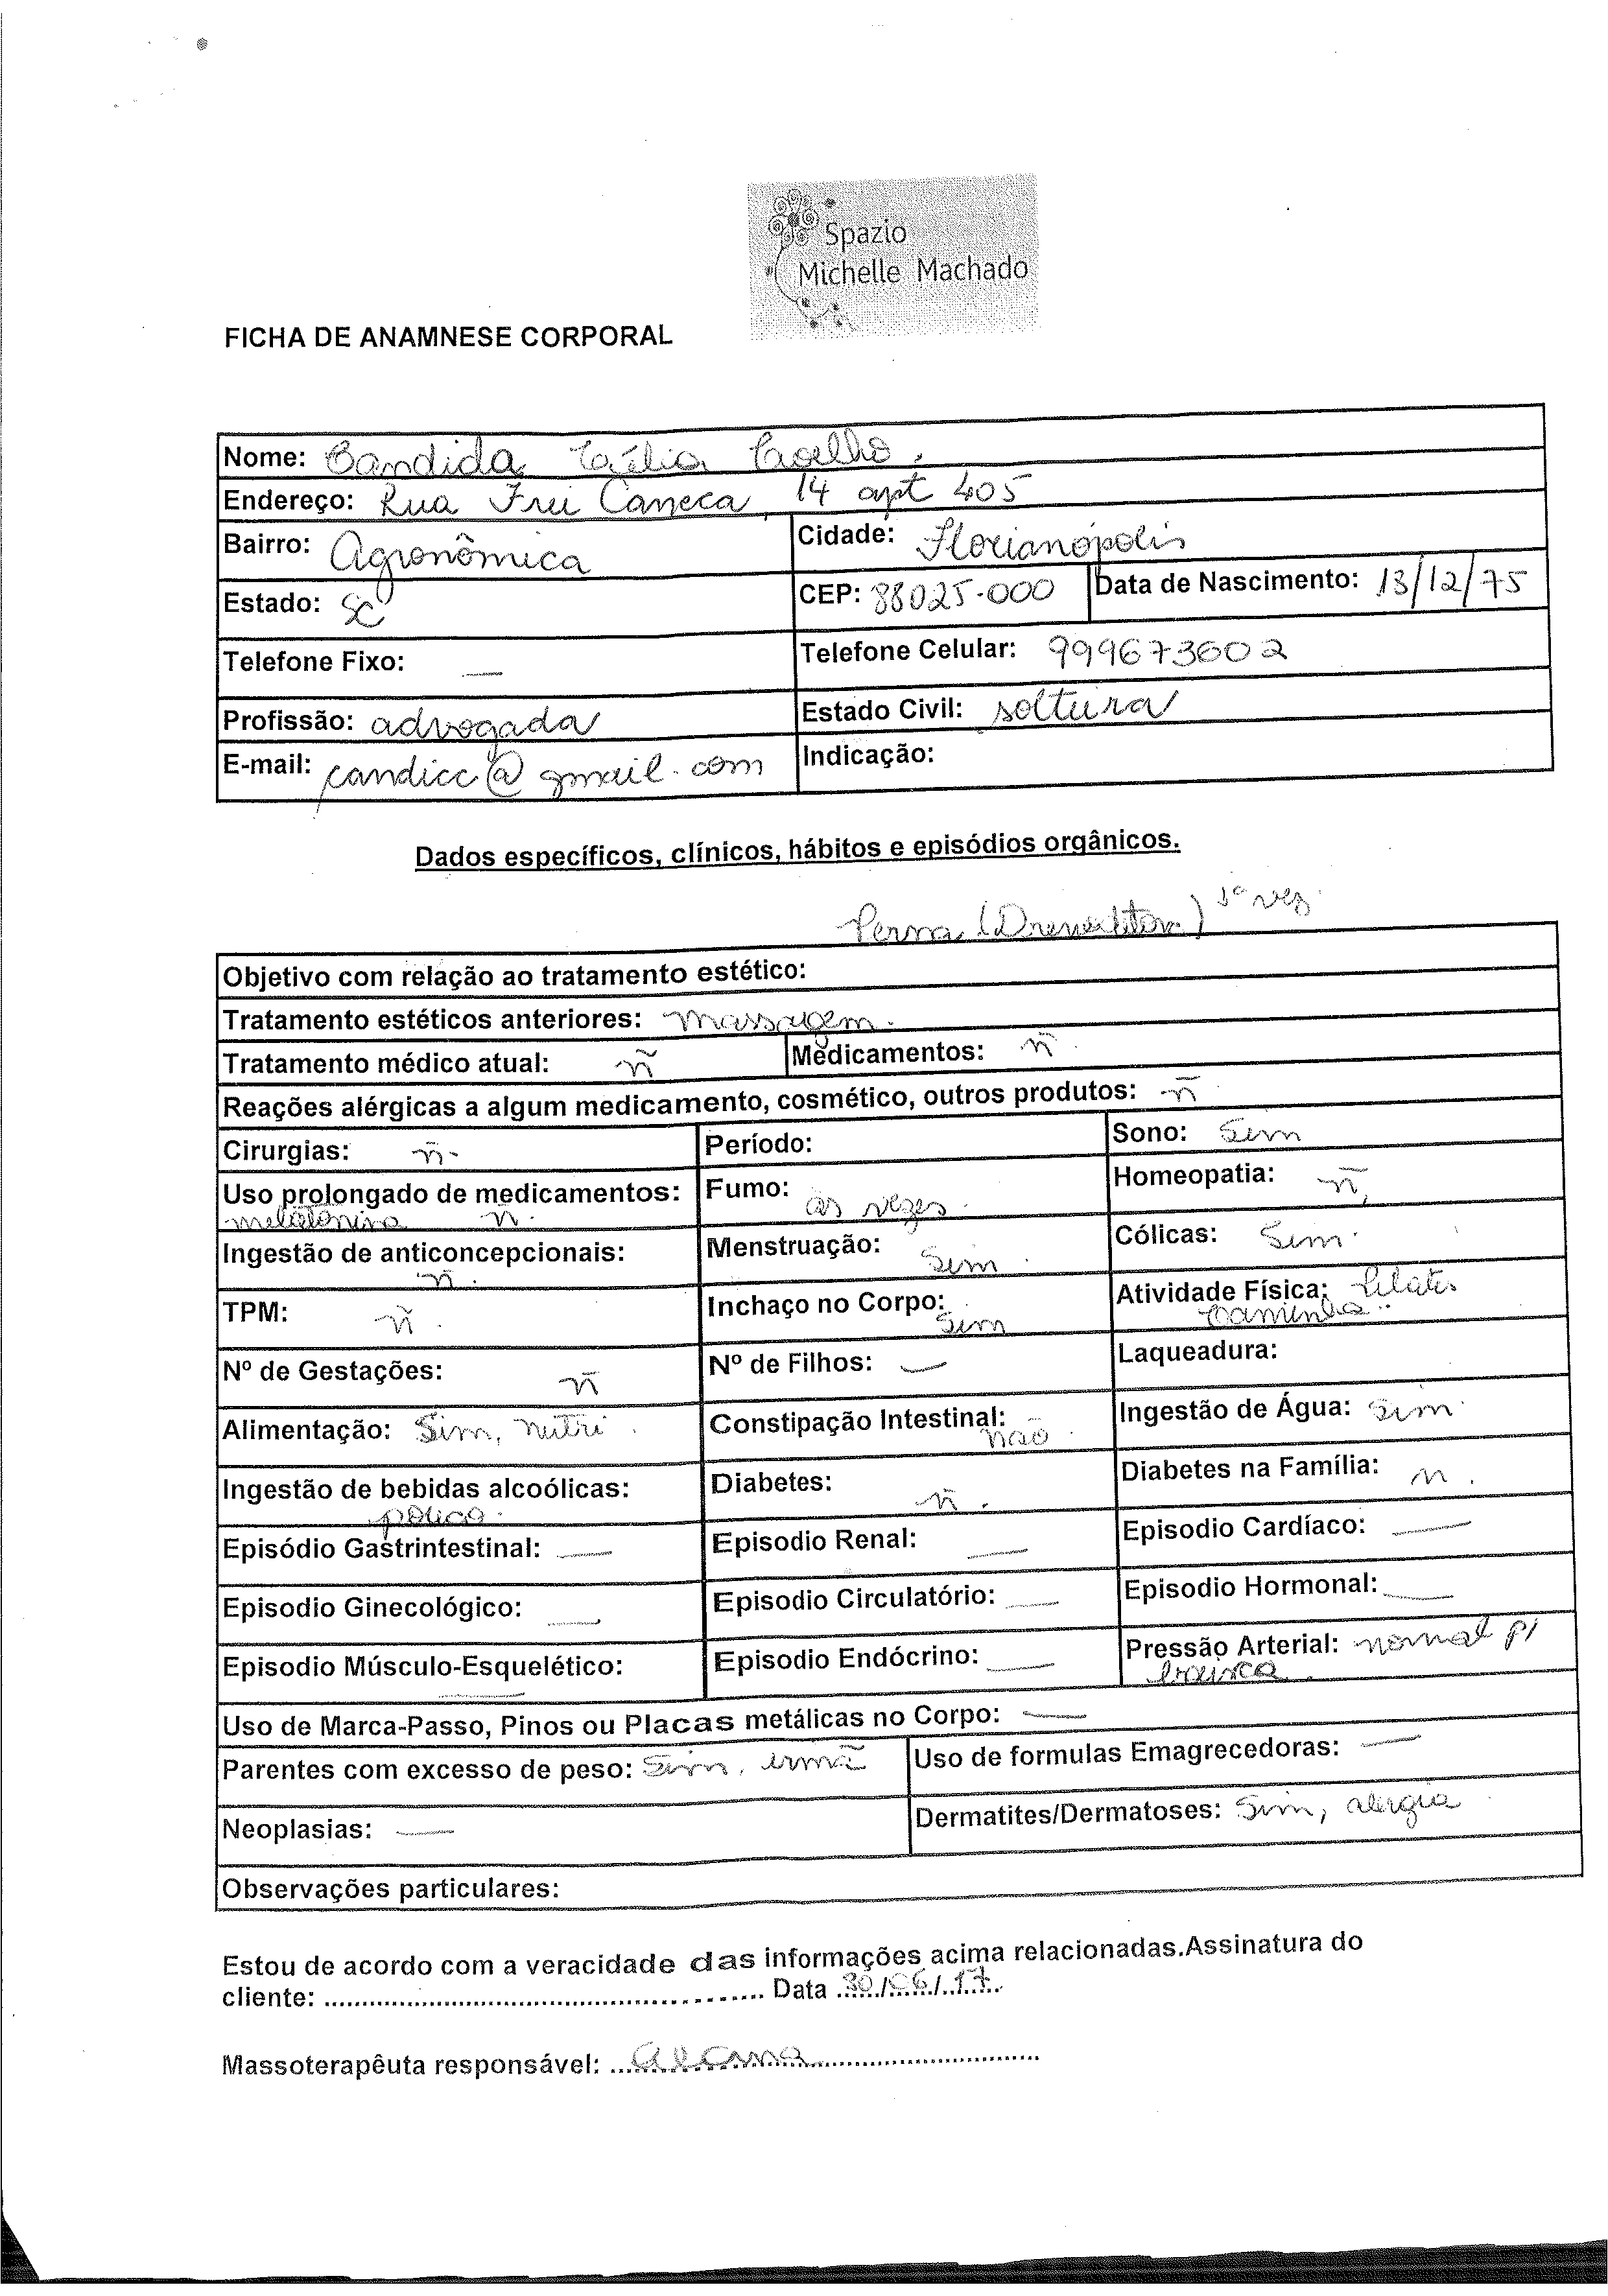 Spazio
Michelle Machado
FICHA DE ANAMNESE CORPORAL
Nome: Candida Coelho.
Endereço: Rua Frei Caneca, 14 apt 405
Bairro: Agronômica Cidade: Florianópolis
Estado: SC CEP: 88025-000 Data de Nascimento: 13/12/75
Telefone Fixo: — Telefone Celular: 999673602
Profissão: advogada Estado Civil: solteira
E-mail: candicc@gmail.com Indicação:
Dados específicos, clínicos, hábitos e episódios orgânicos.
Perna 1ª vez.
Objetivo com relação ao tratamento estético:
Tratamento estéticos anteriores: massagem.
Tratamento médico atual: ñ Medicamentos: ñ.
Reações alérgicas a algum medicamento, cosmético, outros produtos: ñ
Cirurgias: ñ- Período: Sono: Sim
Uso prolongado de medicamentos: Fumo: às vezes. Homeopatia: ñ,
melatonina ñ.
Ingestão de anticoncepcionais: Menstruação: Sim. Cólicas: Sim.
ñ.
TPM: ñ. Inchaço no Corpo: Sim Atividade Física: Pilates
Caminha..
Nº de Gestações: ñ Nº de Filhos: — Laqueadura:
Alimentação: Sim, nutri. Constipação Intestinal: não. Ingestão de Água: sim.
Ingestão de bebidas alcoólicas: Diabetes: ñ. Diabetes na Família: n.
pouco.
Episódio Gastrintestinal: — Episodio Renal: — Episodio Cardíaco: —
Episodio Ginecológico: — Episodio Circulatório: — Episodio Hormonal: —
Episodio Músculo-Esquelético: — Episodio Endócrino: — Pressão Arterial: normal p/
baixa.
Uso de Marca-Passo, Pinos ou Placas metálicas no Corpo: —
Parentes com excesso de peso: Sim, irmã Uso de formulas Emagrecedoras: —
Neoplasias: — Dermatites/Dermatoses: Sim, alergia
Observações particulares:
Estou de acordo com a veracidade das informações acima relacionadas.Assinatura do
cliente: ........................................ Data 30/06/17
Massoterapêuta responsável: